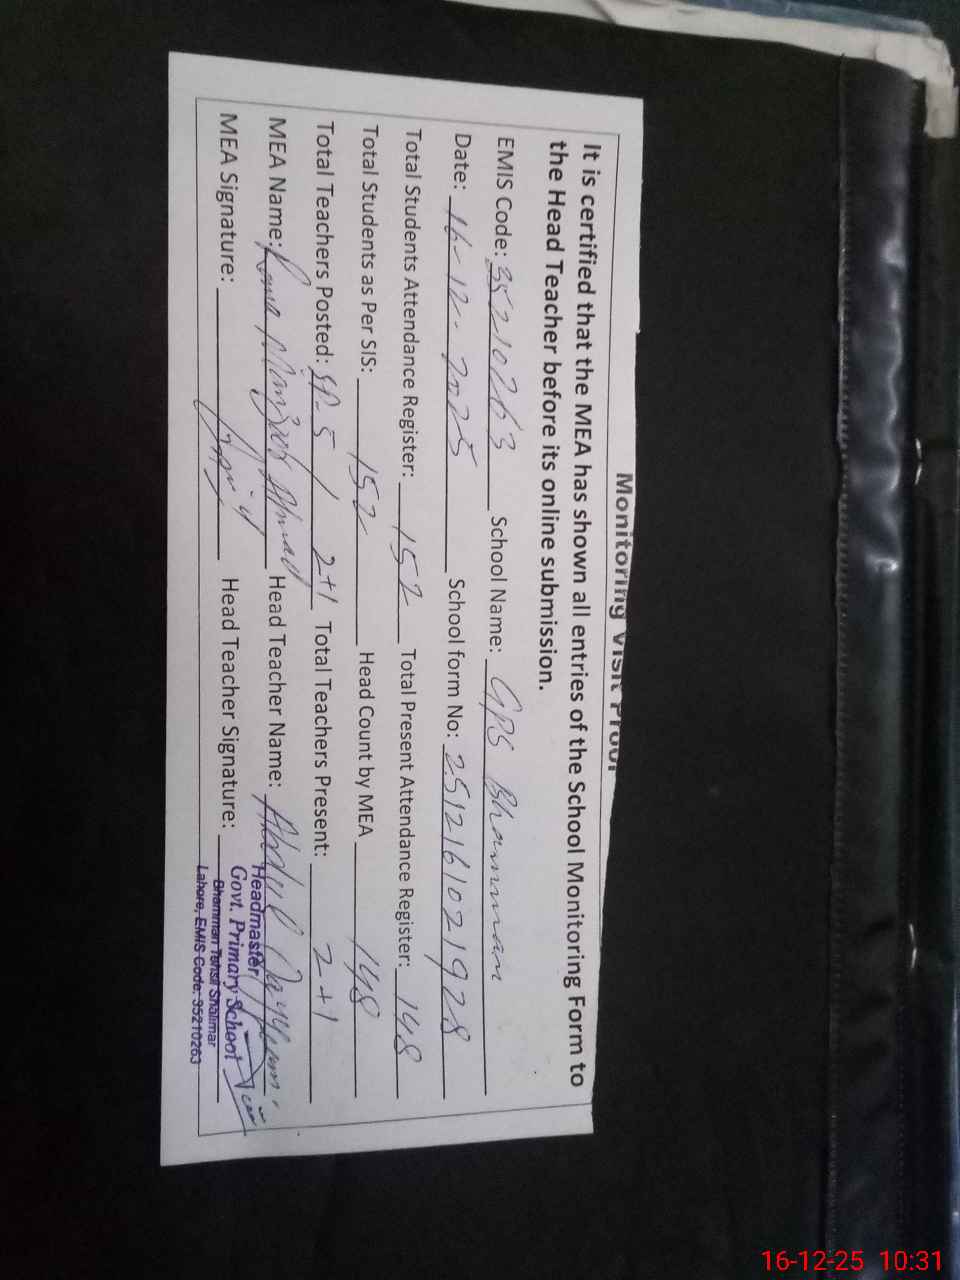 Monitoring Visit Proof
It is certified that the MEA has shown all entries of the School Monitoring Form to
the Head Teacher before its online submission.
EMIS Code: 35210263 School Name: GPS Bhamman
Date: 16-12-2025 School form No: 2512161021928
Total Students Attendance Register: 152 Total Present Attendance Register: 148
Total Students as Per SIS: 152 Head Count by MEA 148
Total Teachers Posted: SP-5 / 2+1 Total Teachers Present: 2+1
MEA Name: Ahmad Head Teacher Name: Abdul Qayyum
MEA Signature: Head Teacher Signature:
Headmaster
Govt. Primary School
Bhamman Tehsil Shalimar
Lahore, EMIS Code: 35210263
16-12-25 10:31